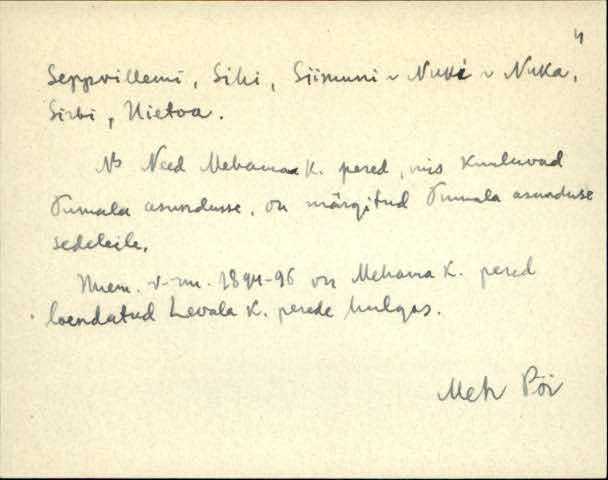 4
Seppvillemi, Sihi, Siimuni v Nuki v Nuka,
Sirbi, Uietoa.
Nb Need Mehama K. pered, mis kuuluvad
Tumala asundusse, on märgitud Tumala asunduse
sedeleile.
v-rm. 1894-96 on Mehama K. pered
loendatud Levala K. perede hulgas.
Meh Pöi